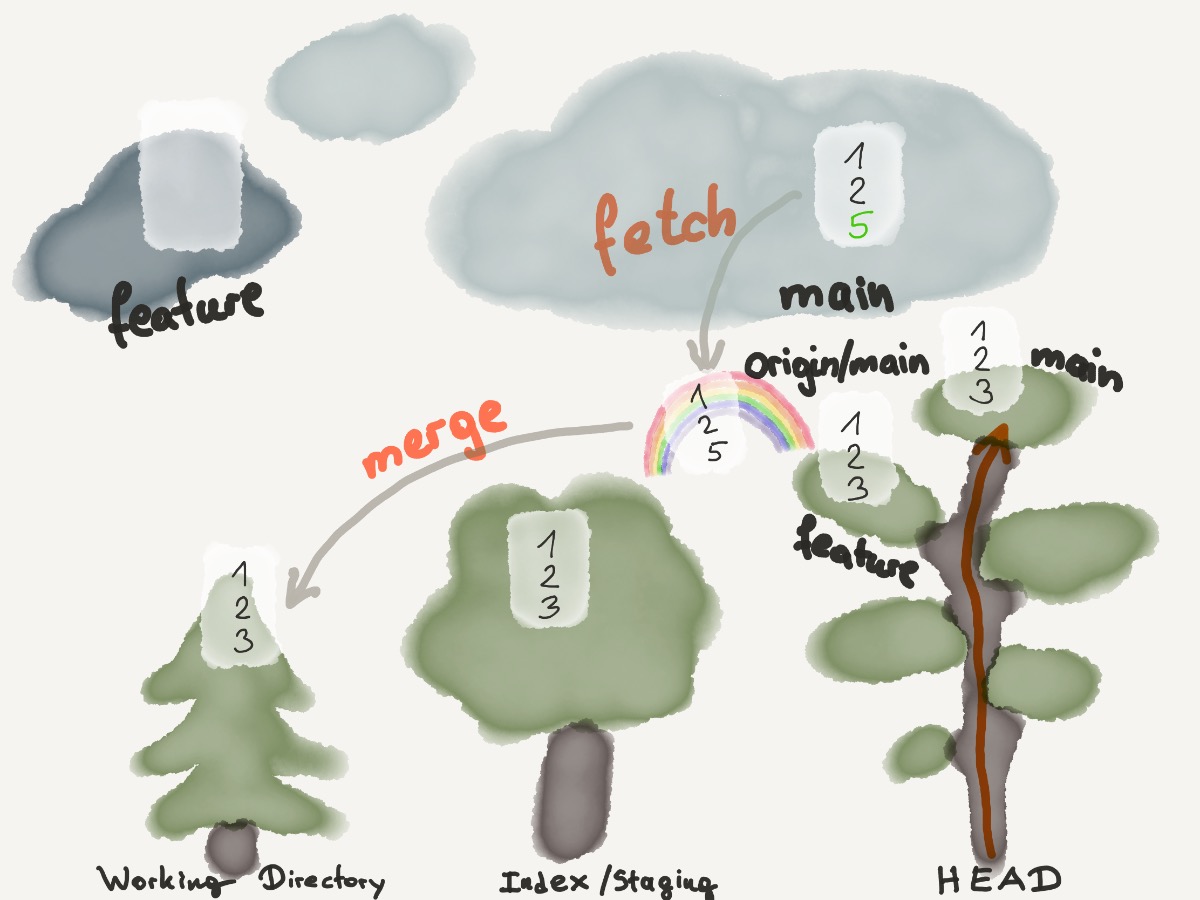 1
2
5
fetch
main
feature
origin/main
1
2
3
main
1
2
5
merge
1
2
3
feature
1
2
3
1
2
3
Working Directory
Index/Staging
HEAD